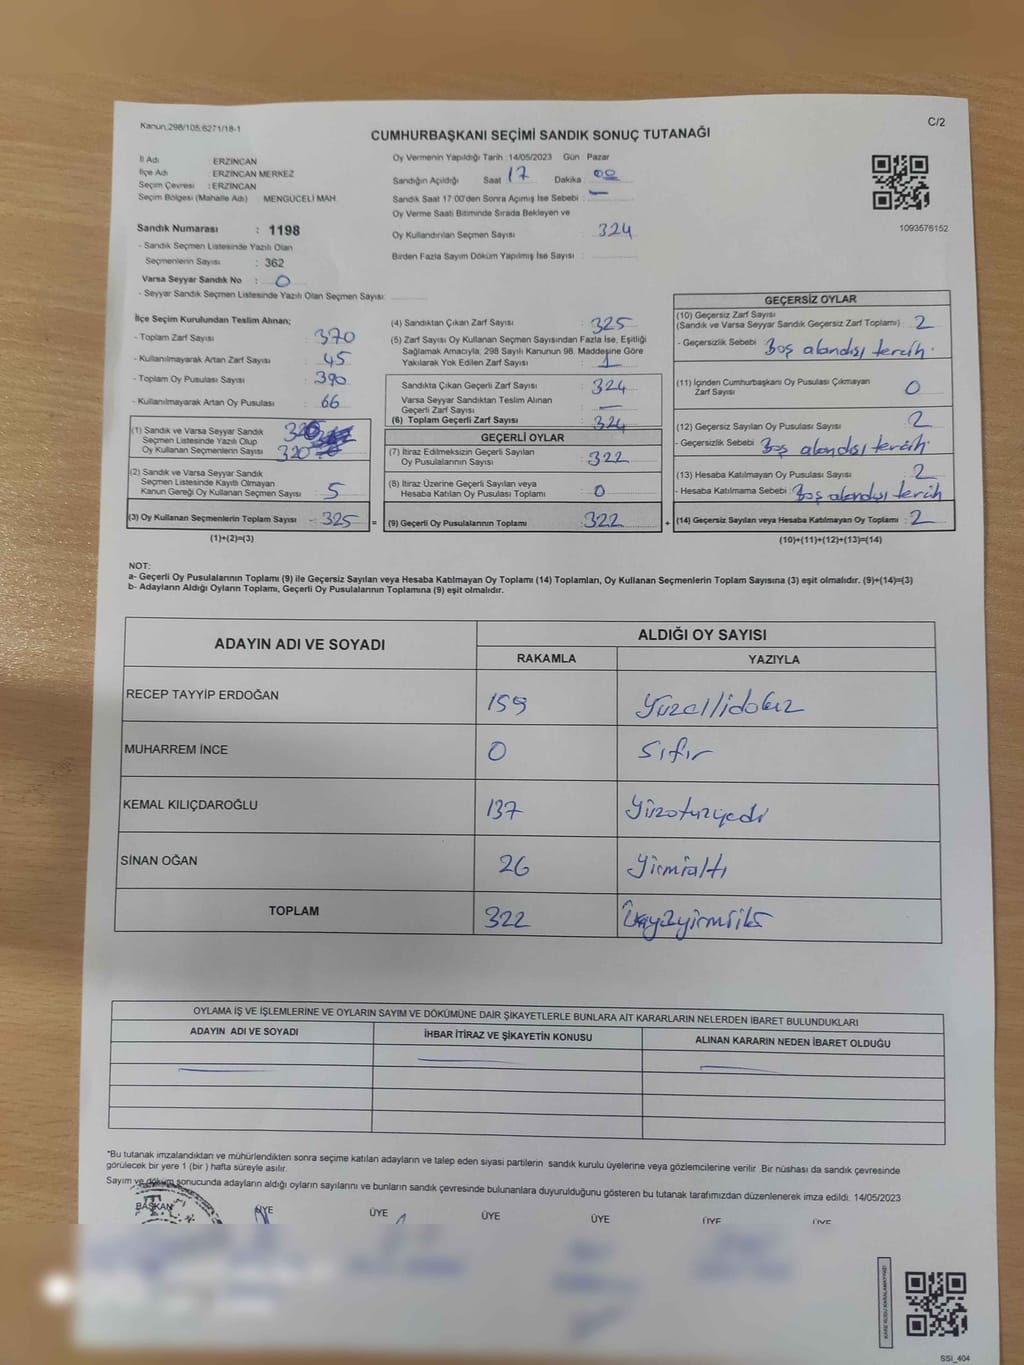 Kanun:298/105,6271/18-1
C/2
CUMHURBAŞKANI SEÇİMİ SANDIK SONUÇ TUTANAĞI
İl Adı ERZİNCAN
İlçe Adı ERZİNCAN MERKEZ
Seçim Çevresi : ERZİNCAN
Seçim Bölgesi (Mahalle Adı) MENGÜCELİ MAH.
Sandık Numarası : 1198
- Sandık Seçmen Listesinde Yazılı Olan
Seçmenlerin Sayısı : 362
Varsa Seyyar Sandık No : 0
- Seyyar Sandık Seçmen Listesinde Yazılı Olan Seçmen Sayısı:
Oy Vermenin Yapıldığı Tarih :14/05/2023 Gün Pazar
Sandığın Açıldığı Saat 17 Dakika 00
Sandık Saat 17:00'den Sonra Açımış İse Sebebi : —
Oy Verme Saati Bitiminde Sırada Bekleyen ve
Oy Kullandırılan Seçmen Sayısı : 324
Birden Fazla Sayım Döküm Yapılmış İse Sayısı :
1093576152
İlçe Seçim Kurulundan Teslim Alınan;
- Toplam Zarf Sayısı : 370
- Kullanılmayarak Artan Zarf Sayısı : 45
- Toplam Oy Pusulası Sayısı : 390
- Kullanılmayarak Artan Oy Pusulası : 66
(1) Sandık ve Varsa Seyyar Sandık
Seçmen Listesinde Yazılı Olup
Oy Kullanan Seçmenlerin Sayısı : 320
(2) Sandık ve Varsa Seyyar Sandık
Seçmen Listesinde Kayıtlı Olmayan
Kanun Gereği Oy Kullanan Seçmen Sayısı : 5
(3) Oy Kullanan Seçmenlerin Toplam Sayısı - 325 =
(1)+(2)=(3)
(4) Sandıktan Çıkan Zarf Sayısı : 325
(5) Zarf Sayısı Oy Kullanan Seçmen Sayısından Fazla İse, Eşitliği
Sağlamak Amacıyla, 298 Sayılı Kanunun 98. Maddesine Göre
Yakılarak Yok Edilen Zarf Sayısı : 1
Sandıkta Çıkan Geçerli Zarf Sayısı : 324
Varsa Seyyar Sandıktan Teslim Alınan
Geçerli Zarf Sayısı : —
(6) Toplam Geçerli Zarf Sayısı : 324
GEÇERLİ OYLAR
(7) İtiraz Edilmeksizin Geçerli Sayılan
Oy Pusulalarının Sayısı : 322
(8) İtiraz Üzerine Geçerli Sayılan veya
Hesaba Katılan Oy Pusulası Toplamı : 0
(9) Geçerli Oy Pusulalarının Toplamı : 322 +
GEÇERSİZ OYLAR
(10) Geçersiz Zarf Sayısı
(Sandık ve Varsa Seyyar Sandık Geçersiz Zarf Toplamı) : 2
- Geçersizlik Sebebi : Boş alandışı tercih.
(11) İçinden Cumhurbaşkanı Oy Pusulası Çıkmayan
Zarf Sayısı : 0
(12) Geçersiz Sayılan Oy Pusulası Sayısı : 2
- Geçersizlik Sebebi : Boş alandışı tercih.
(13) Hesaba Katılmayan Oy Pusulası Sayısı : 2
- Hesaba Katılmama Sebebi : Boş alandışı tercih
(14) Geçersiz Sayılan veya Hesaba Katılmayan Oy Toplamı : 2
(10)+(11)+(12)+(13)=(14)
NOT:
a- Geçerli Oy Pusulalarının Toplamı (9) ile Geçersiz Sayılan veya Hesaba Katılmayan Oy Toplamı (14) Toplamları, Oy Kullanan Seçmenlerin Toplam Sayısına (3) eşit olmalıdır. (9)+(14)=(3)
b- Adayların Aldığı Oyların Toplamı, Geçerli Oy Pusulalarının Toplamına (9) eşit olmalıdır.
ADAYIN ADI VE SOYADI
ALDIĞI OY SAYISI
RAKAMLA YAZIYLA
RECEP TAYYİP ERDOĞAN 159 Yüzellidokuz
MUHARREM İNCE 0 Sıfır
KEMAL KILIÇDAROĞLU 137 Yüzotuzyedi
SİNAN OĞAN 26 Yirmialtı
TOPLAM 322 Üçyüzyirmiiki
OYLAMA İŞ VE İŞLEMLERİNE VE OYLARIN SAYIM VE DÖKÜMÜNE DAİR ŞİKAYETLERLE BUNLARA AİT KARARLARIN NELERDEN İBARET BULUNDUKLARI
ADAYIN ADI VE SOYADI İHBAR İTİRAZ VE ŞİKAYETİN KONUSU ALINAN KARARIN NEDEN İBARET OLDUĞU
*Bu tutanak imzalandıktan ve mühürlendikten sonra seçime katılan adayların ve talep eden siyasi partilerin sandık kurulu üyelerine veya gözlemcilerine verilir. Bir nüshası da sandık çevresinde
görülecek bir yere 1 (bir) hafta süreyle asılır.
Sayım ve döküm sonucunda adayların aldığı oyların sayılarını ve bunların sandık çevresinde bulunanlara duyurulduğunu gösteren bu tutanak tarafımızdan düzenlenerek imza edildi. 14/05/2023
BAŞKAN ÜYE ÜYE ÜYE ÜYE ÜYE ÜYE
SSI_404